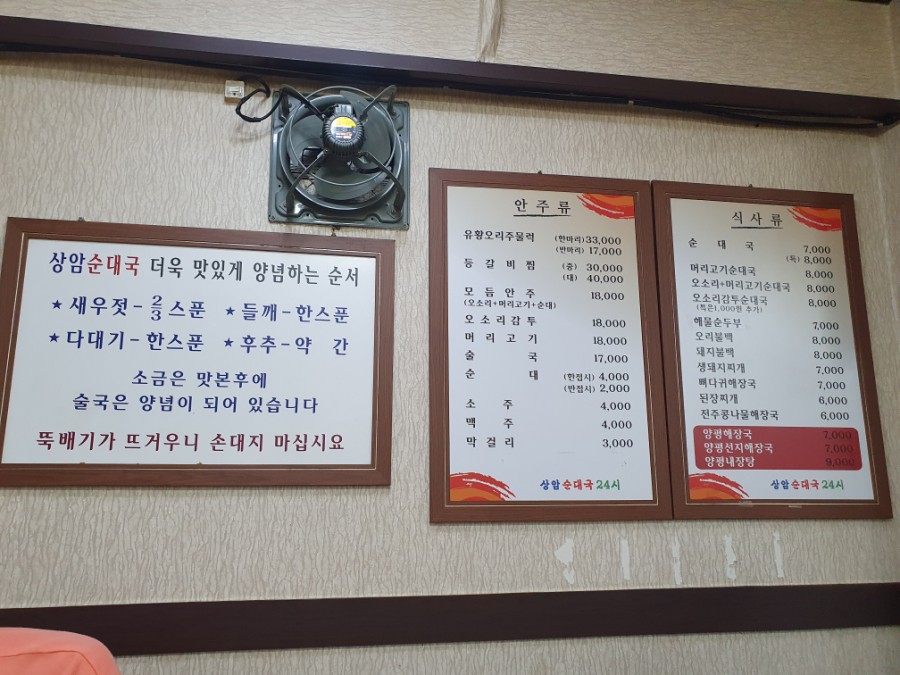 상암순대국 더욱 맛있게 양념하는 순서
★ 새우젓 - 2/3 스푼 ★ 들깨 - 한스푼
★ 다대기 - 한스푼 ★ 후추 - 약 간
소금은 맛본후에
술국은 양념이 되어 있습니다
뚝배기가 뜨거우니 손대지 마십시요
안 주 류
유황오리주물럭 (한마리) 33,000
(반마리) 17,000
등 갈 비 찜 (중) 30,000
(대) 40,000
모 듬 안 주 18,000
(오소리+머리고기+순대)
오 소 리 감 투 18,000
머 리 고 기 18,000
술 국 17,000
순 대 (한접시) 4,000
(반접시) 2,000
소 주 4,000
맥 주 4,000
막 걸 리 3,000
상암 순대국 24시
식 사 류
순 대 국 7,000
(특) 8,000
머리고기순대국 8,000
오소리+머리고기순대국 8,000
오소리감투순대국 8,000
(특은1,000원 추가)
해물순두부 7,000
오리불백 8,000
돼지불백 8,000
생돼지찌개 7,000
뼈다귀해장국 7,000
된장찌개 6,000
전주콩나물해장국 6,000
양평해장국 7,000
양평선지해장국 7,000
양평내장탕 9,000
상암 순대국 24시